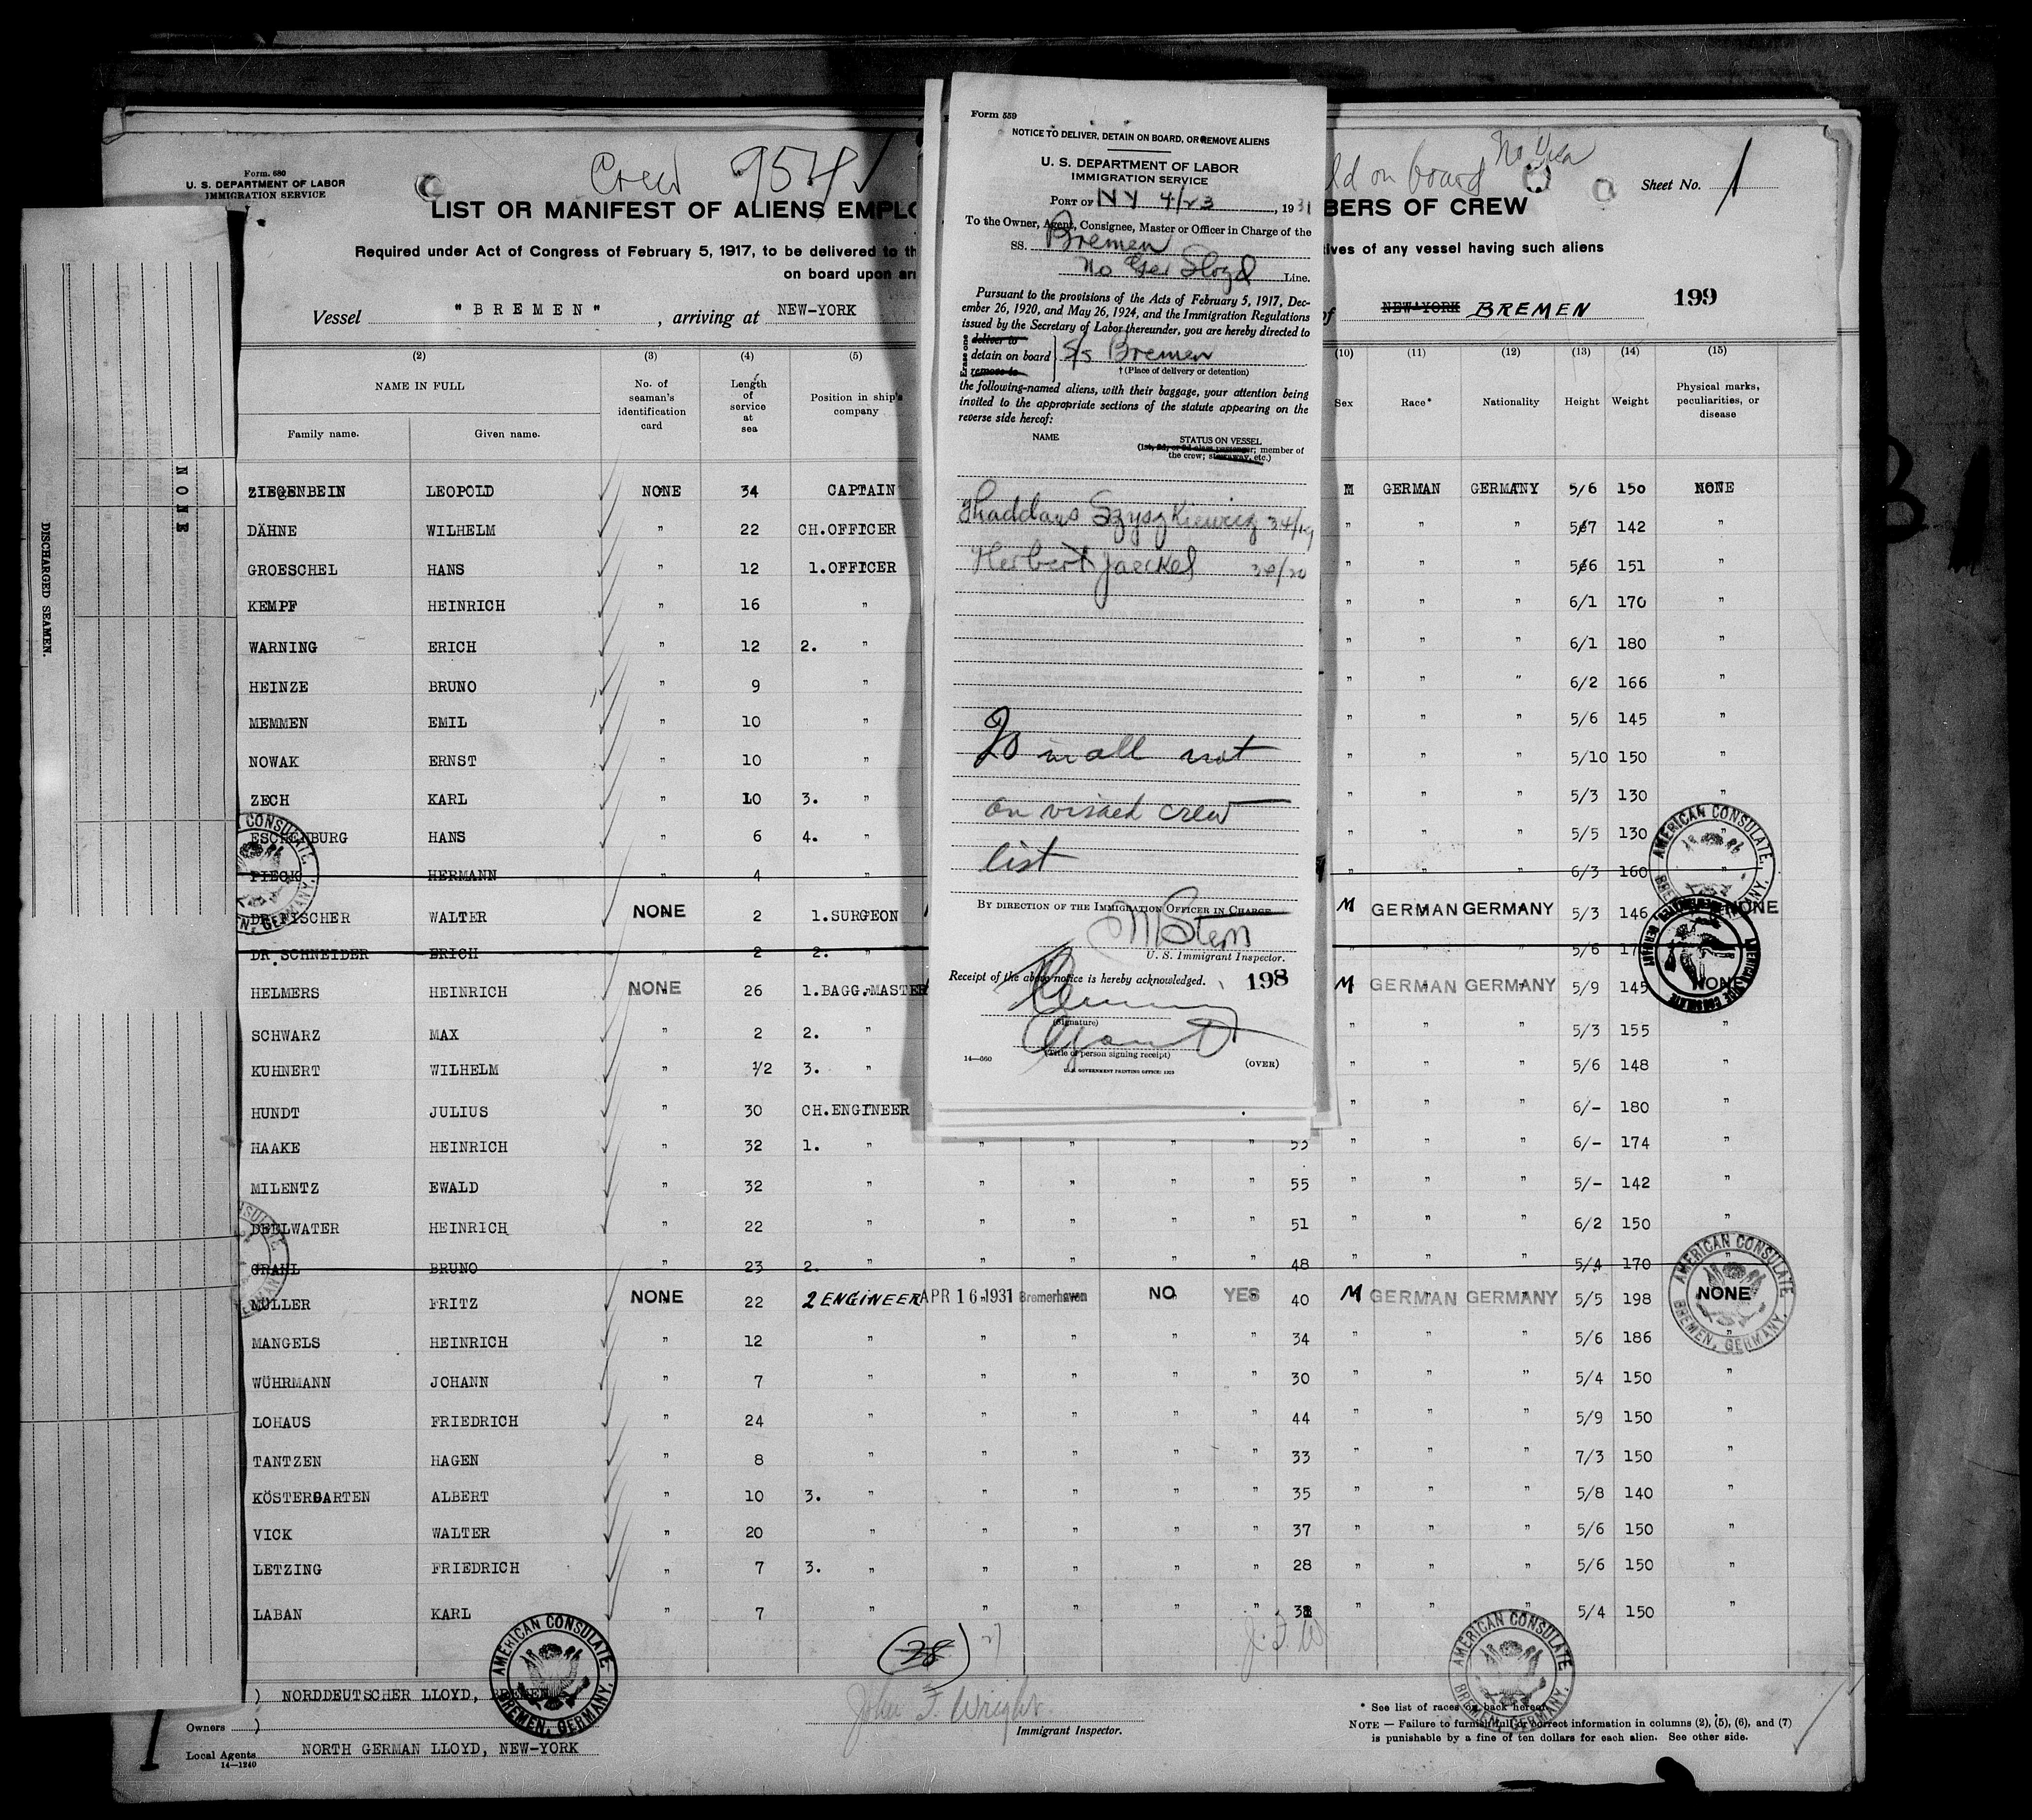 Form. 680
U. S. DEPARTMENT OF LABOR
IMMIGRATION SERVICE
Crew 954
ld on board No Visa
Sheet No. 1
LIST OR MANIFEST OF ALIENS EMPLO
BERS OF CREW
Required under Act of Congress of February 5, 1917, to be delivered to th
tives of any vessel having such aliens
on board upon arr
Vessel "BREMEN", arriving at NEW-YORK
of NEW-YORK BREMEN
199
(2) (3) (4) (5) (10) (11) (12) (13) (14) (15)
NAME IN FULL
Family name. Given name.
No. of seaman's identification card
Length of service at sea
Position in ship's company
Sex Race* Nationality Height Weight
Physical marks, peculiarities, or disease
ZIEGENBEIN LEOPOLD NONE 34 CAPTAIN M GERMAN GERMANY 5/6 150 NONE
DÄHNE WILHELM " 22 CH.OFFICER " " " 5/7 142 "
GROESCHEL HANS " 12 1.OFFICER " " " 5/6 151 "
KEMPF HEINRICH " 16 " " " " 6/1 170 "
WARNING ERICH " 12 2. " " " " 6/1 180 "
HEINZE BRUNO " 9 " " " " 6/2 166 "
MEMMEN EMIL " 10 " " " " 5/6 145 "
NOWAK ERNST " 10 " " " " 5/10 150 "
ZECH KARL " 10 3. " " " " 5/3 130 "
ESCHENBURG HANS " 6 4. " " " " 5/5 130 "
PIECK HERMANN " 4 " " " " 6/3 160 "
DR.FISCHER WALTER NONE 2 1.SURGEON M GERMAN GERMANY 5/3 146 NONE
DR.SCHNEIDER ERICH " 2 2. " " " " 5/6
HELMERS HEINRICH NONE 26 1.BAGG.MASTER M GERMAN GERMANY 5/9 145 NONE
SCHWARZ MAX " 2 2. " " " " 5/3 155 "
KUHNERT WILHELM " 1/2 3. " " " " 5/6 148 "
HUNDT JULIUS " 30 CH.ENGINEER " " " 6/- 180 "
HAAKE HEINRICH " 32 1. " " " " " 53 " " " 6/- 174 "
MILENTZ EWALD " 32 " " " " " 55 " " " 5/- 142 "
DEELWATER HEINRICH " 22 " " " " " 51 " " " 6/2 150 "
GRAHL BRUNO " 23 2. " " " " " 48 " " " 5/4 170 "
MÜLLER FRITZ NONE 22 2 ENGINEER APR 16 1931 Bremerhaven NO YES 40 M GERMAN GERMANY 5/5 198 NONE
MANGELS HEINRICH " 12 " " " " " 34 " " " 5/6 186 "
WÜHRMANN JOHANN " 7 " " " " " 30 " " " 5/4 150 "
LOHAUS FRIEDRICH " 24 " " " " " 44 " " " 5/9 150 "
TANTZEN HAGEN " 8 " " " " " 33 " " " 7/3 150 "
KÖSTERGARTEN ALBERT " 10 3. " " " " " 35 " " " 5/8 140 "
VICK WALTER " 20 " " " " " 37 " " " 5/6 150 "
LETZING FRIEDRICH " 7 3. " " " " " 28 " " " 5/6 150 "
LABAN KARL " 7 " " " " " " " " 5/4 150 "
(28) 27
J.F.W
) NORDDEUTSCHER LLOYD, BREMEN
Owners )
Local Agents NORTH GERMAN LLOYD, NEW-YORK
14—1240
John F. Wright
Immigrant Inspector.
* See list of races on back hereof.
NOTE — Failure to furnish full or correct information in columns (2), (5), (6), and (7)
is punishable by a fine of ten dollars for each alien. See other side.
AMERICAN CONSULATE, BREMEN, GERMANY.
AMERICAN CONSULATE, BREMEN, GERMANY.
AMERICAN CONSULATE, BREMEN, GERMANY.
AMERICAN CONSULATE, BREMEN, GERMANY.
Form 559
NOTICE TO DELIVER, DETAIN ON BOARD, OR REMOVE ALIENS
U. S. DEPARTMENT OF LABOR
IMMIGRATION SERVICE
PORT OF NY 4/23, 1931
To the Owner, Agent, Consignee, Master or Officer in Charge of the
SS. Bremen
No Ger Lloyd Line.
Pursuant to the provisions of the Acts of February 5, 1917, Dec-
ember 26, 1920, and May 26, 1924, and the Immigration Regulations
issued by the Secretary of Labor thereunder, you are hereby directed to
Erase one
deliver to
detain on board S/s Bremen
remove to
† (Place of delivery or detention)
the following-named aliens, with their baggage, your attention being
invited to the appropriate sections of the statute appearing on the
reverse side hereof:
NAME STATUS ON VESSEL
(1st, 2d, or 3d class passenger; member of
the crew; stowaway, etc.)
Thaddaus Szyszkiewicz 34/19
Herbert Jaeckel 34/20
20 in all not
on visaed crew
list
BY DIRECTION OF THE IMMIGRATION OFFICER IN CHARGE
M Stern
U. S. Immigrant Inspector.
Receipt of the above notice is hereby acknowledged.
198
(Signature)
Agent
(Title of person signing receipt)
14—660
(OVER)
U. S. GOVERNMENT PRINTING OFFICE: 1929
NONE
DISCHARGED SEAMEN.